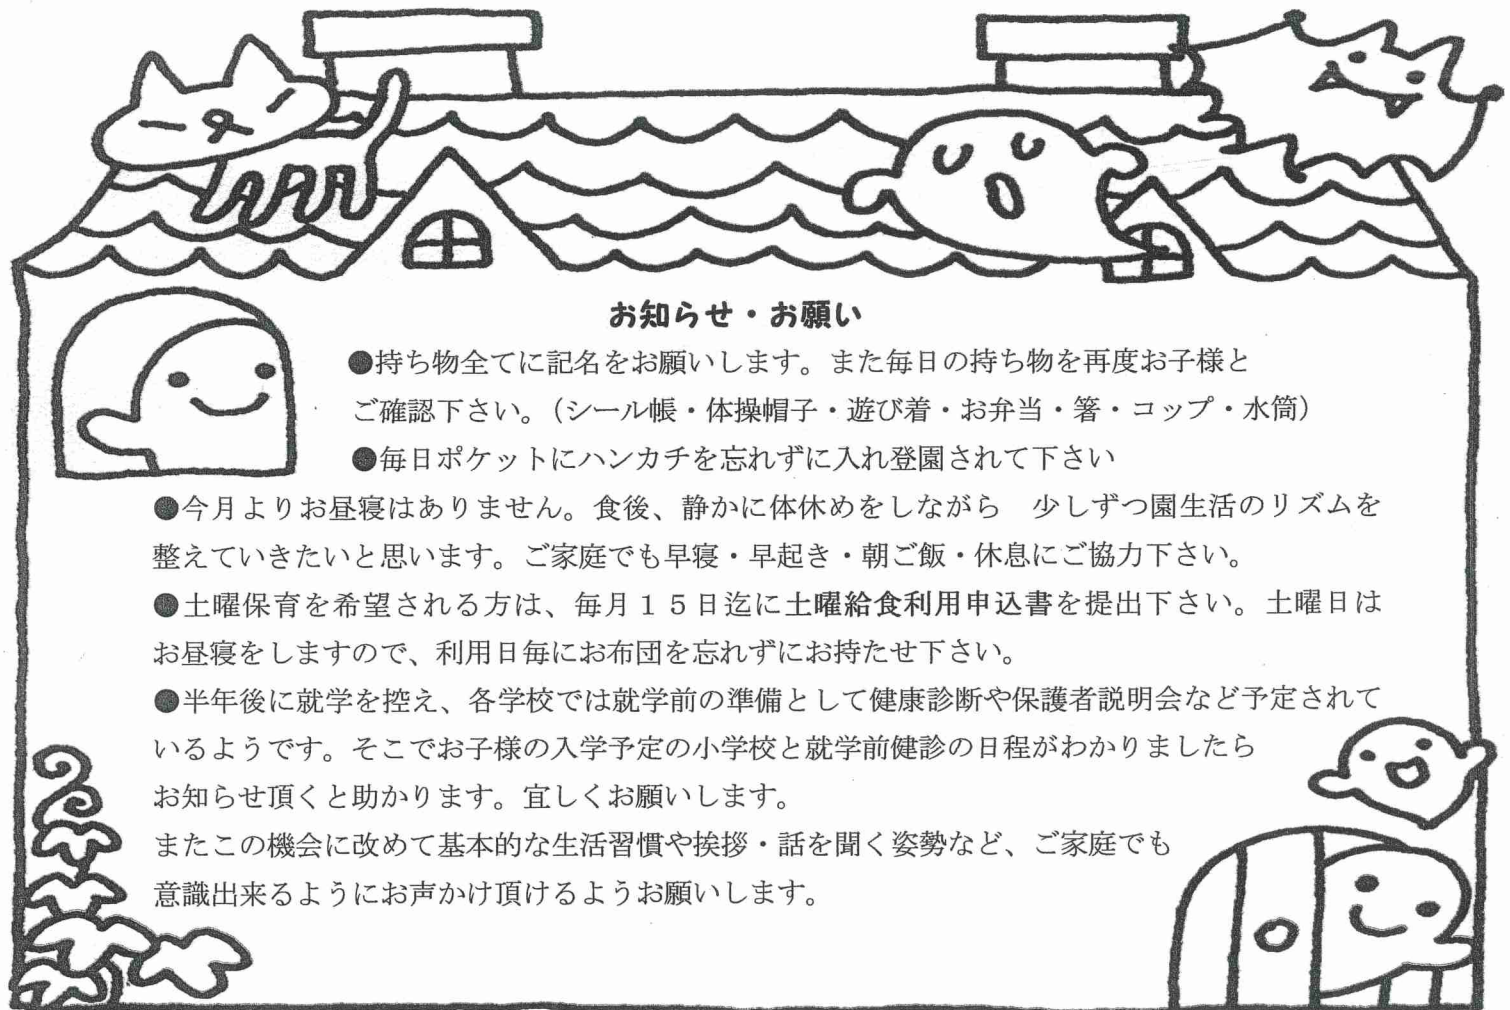 お知らせ・お願い
●持ち物全てに記名をお願いします。また毎日の持ち物を再度お子様と
ご確認下さい。（シール帳・体操帽子・遊び着・お弁当・箸・コップ・水筒）
●毎日ポケットにハンカチを忘れずに入れ登園されて下さい
●今月よりお昼寝はありません。食後、静かに体休めをしながら　少しずつ園生活のリズムを
整えていきたいと思います。ご家庭でも早寝・早起き・朝ご飯・休息にご協力下さい。
●土曜保育を希望される方は、毎月１５日迄に土曜給食利用申込書を提出下さい。土曜日は
お昼寝をしますので、利用日毎にお布団を忘れずにお持たせ下さい。
●半年後に就学を控え、各学校では就学前の準備として健康診断や保護者説明会など予定されて
いるようです。そこでお子様の入学予定の小学校と就学前健診の日程がわかりましたら
お知らせ頂くと助かります。宜しくお願いします。
またこの機会に改めて基本的な生活習慣や挨拶・話を聞く姿勢など、ご家庭でも
意識出来るようにお声かけ頂けるようお願いします。